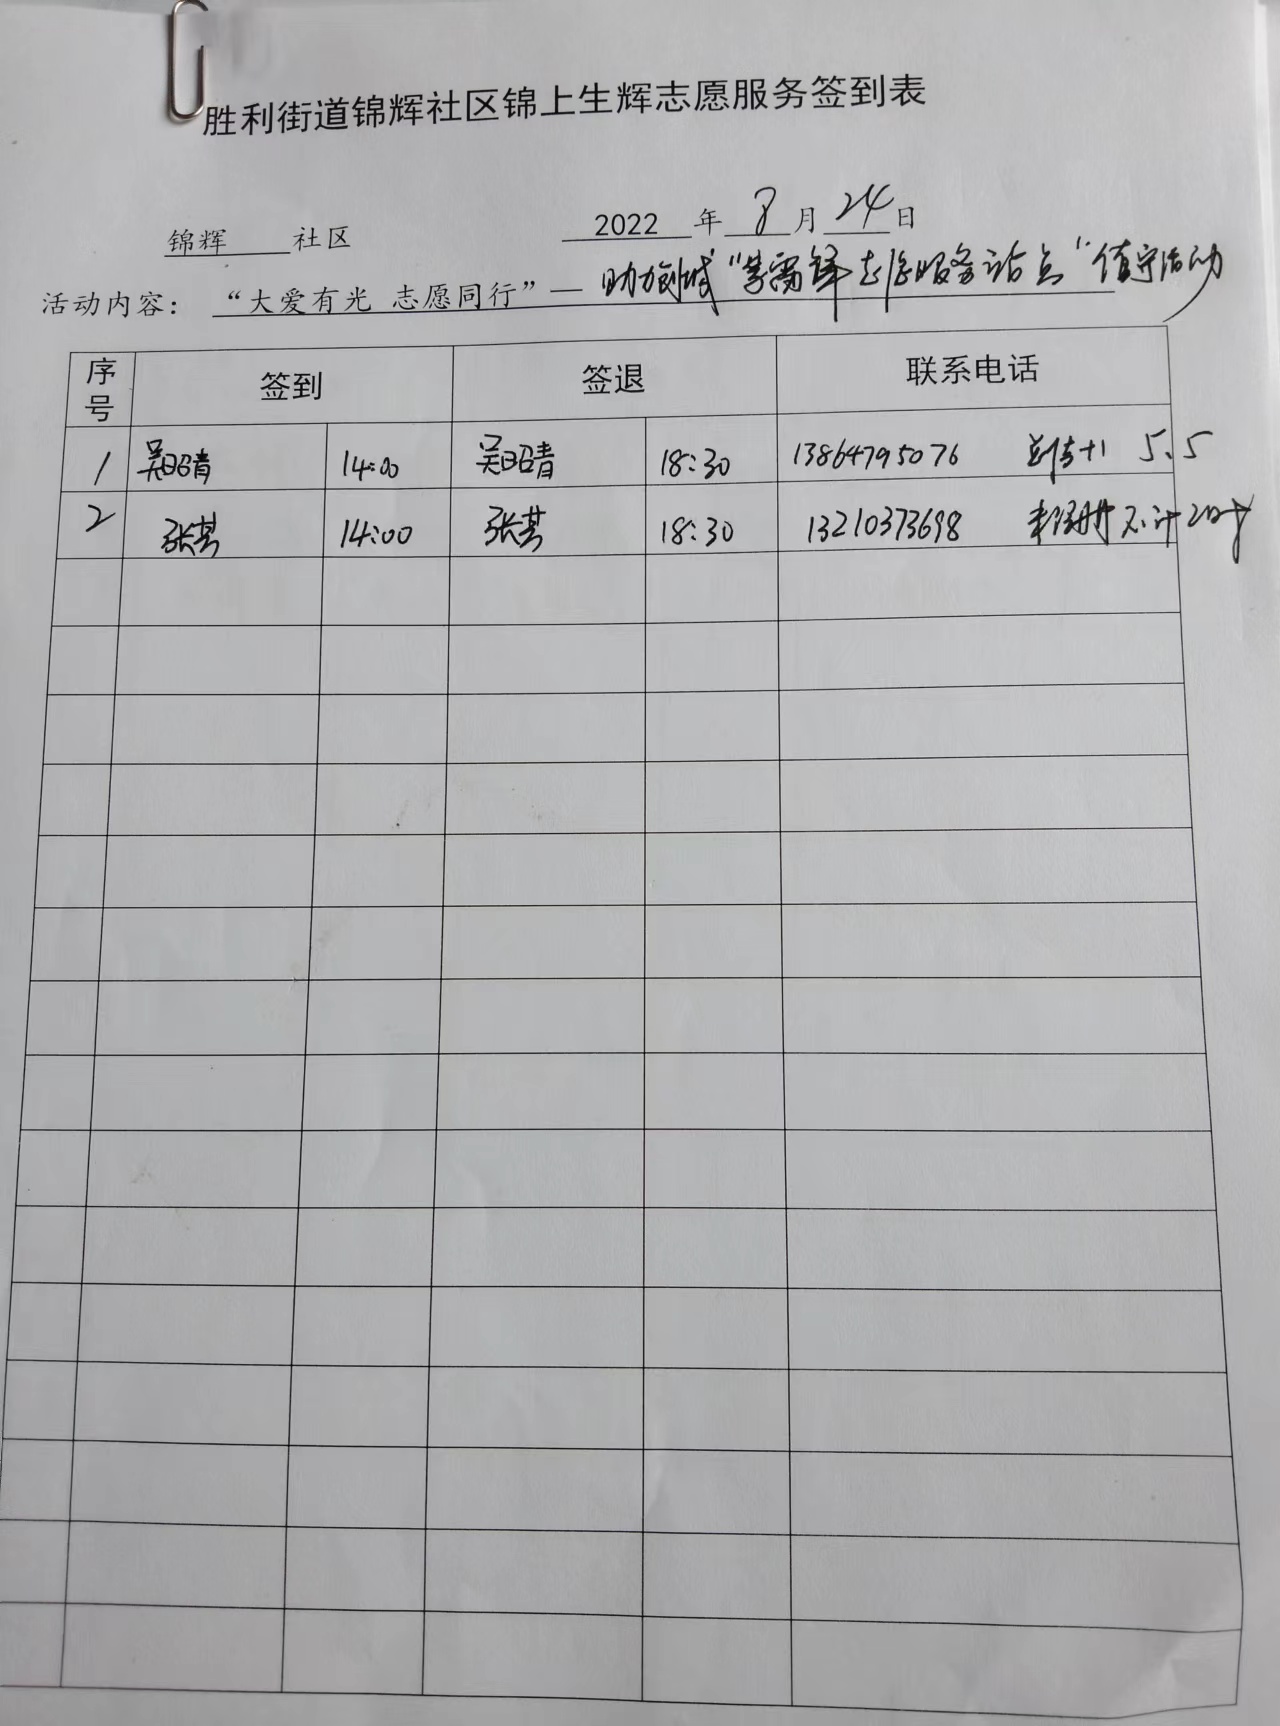 胜利街道锦辉社区锦上生辉志愿服务签到表
锦辉 社区 2022 年 8 月 24 日
活动内容： “大爱有光 志愿同行”— 助力创城“学雷锋志愿服务站点”值守活动
序号 签到 签退 联系电话
1 吴昭青 14:00 吴昭青 18:30 13864795076 5.5
2 张 14:00 张 18:30 13210373698 未注册不计时